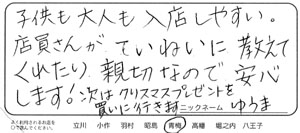 子供も大人も入店しやすい。
店員さんが、ていねいに教えて
くれたり、親切なので安心
します!次はクリスマスプレゼントを
買いに行きます ニックネーム ゆうま
立川 小作 羽村 昭島 青梅 高幡 堀之内 八王子